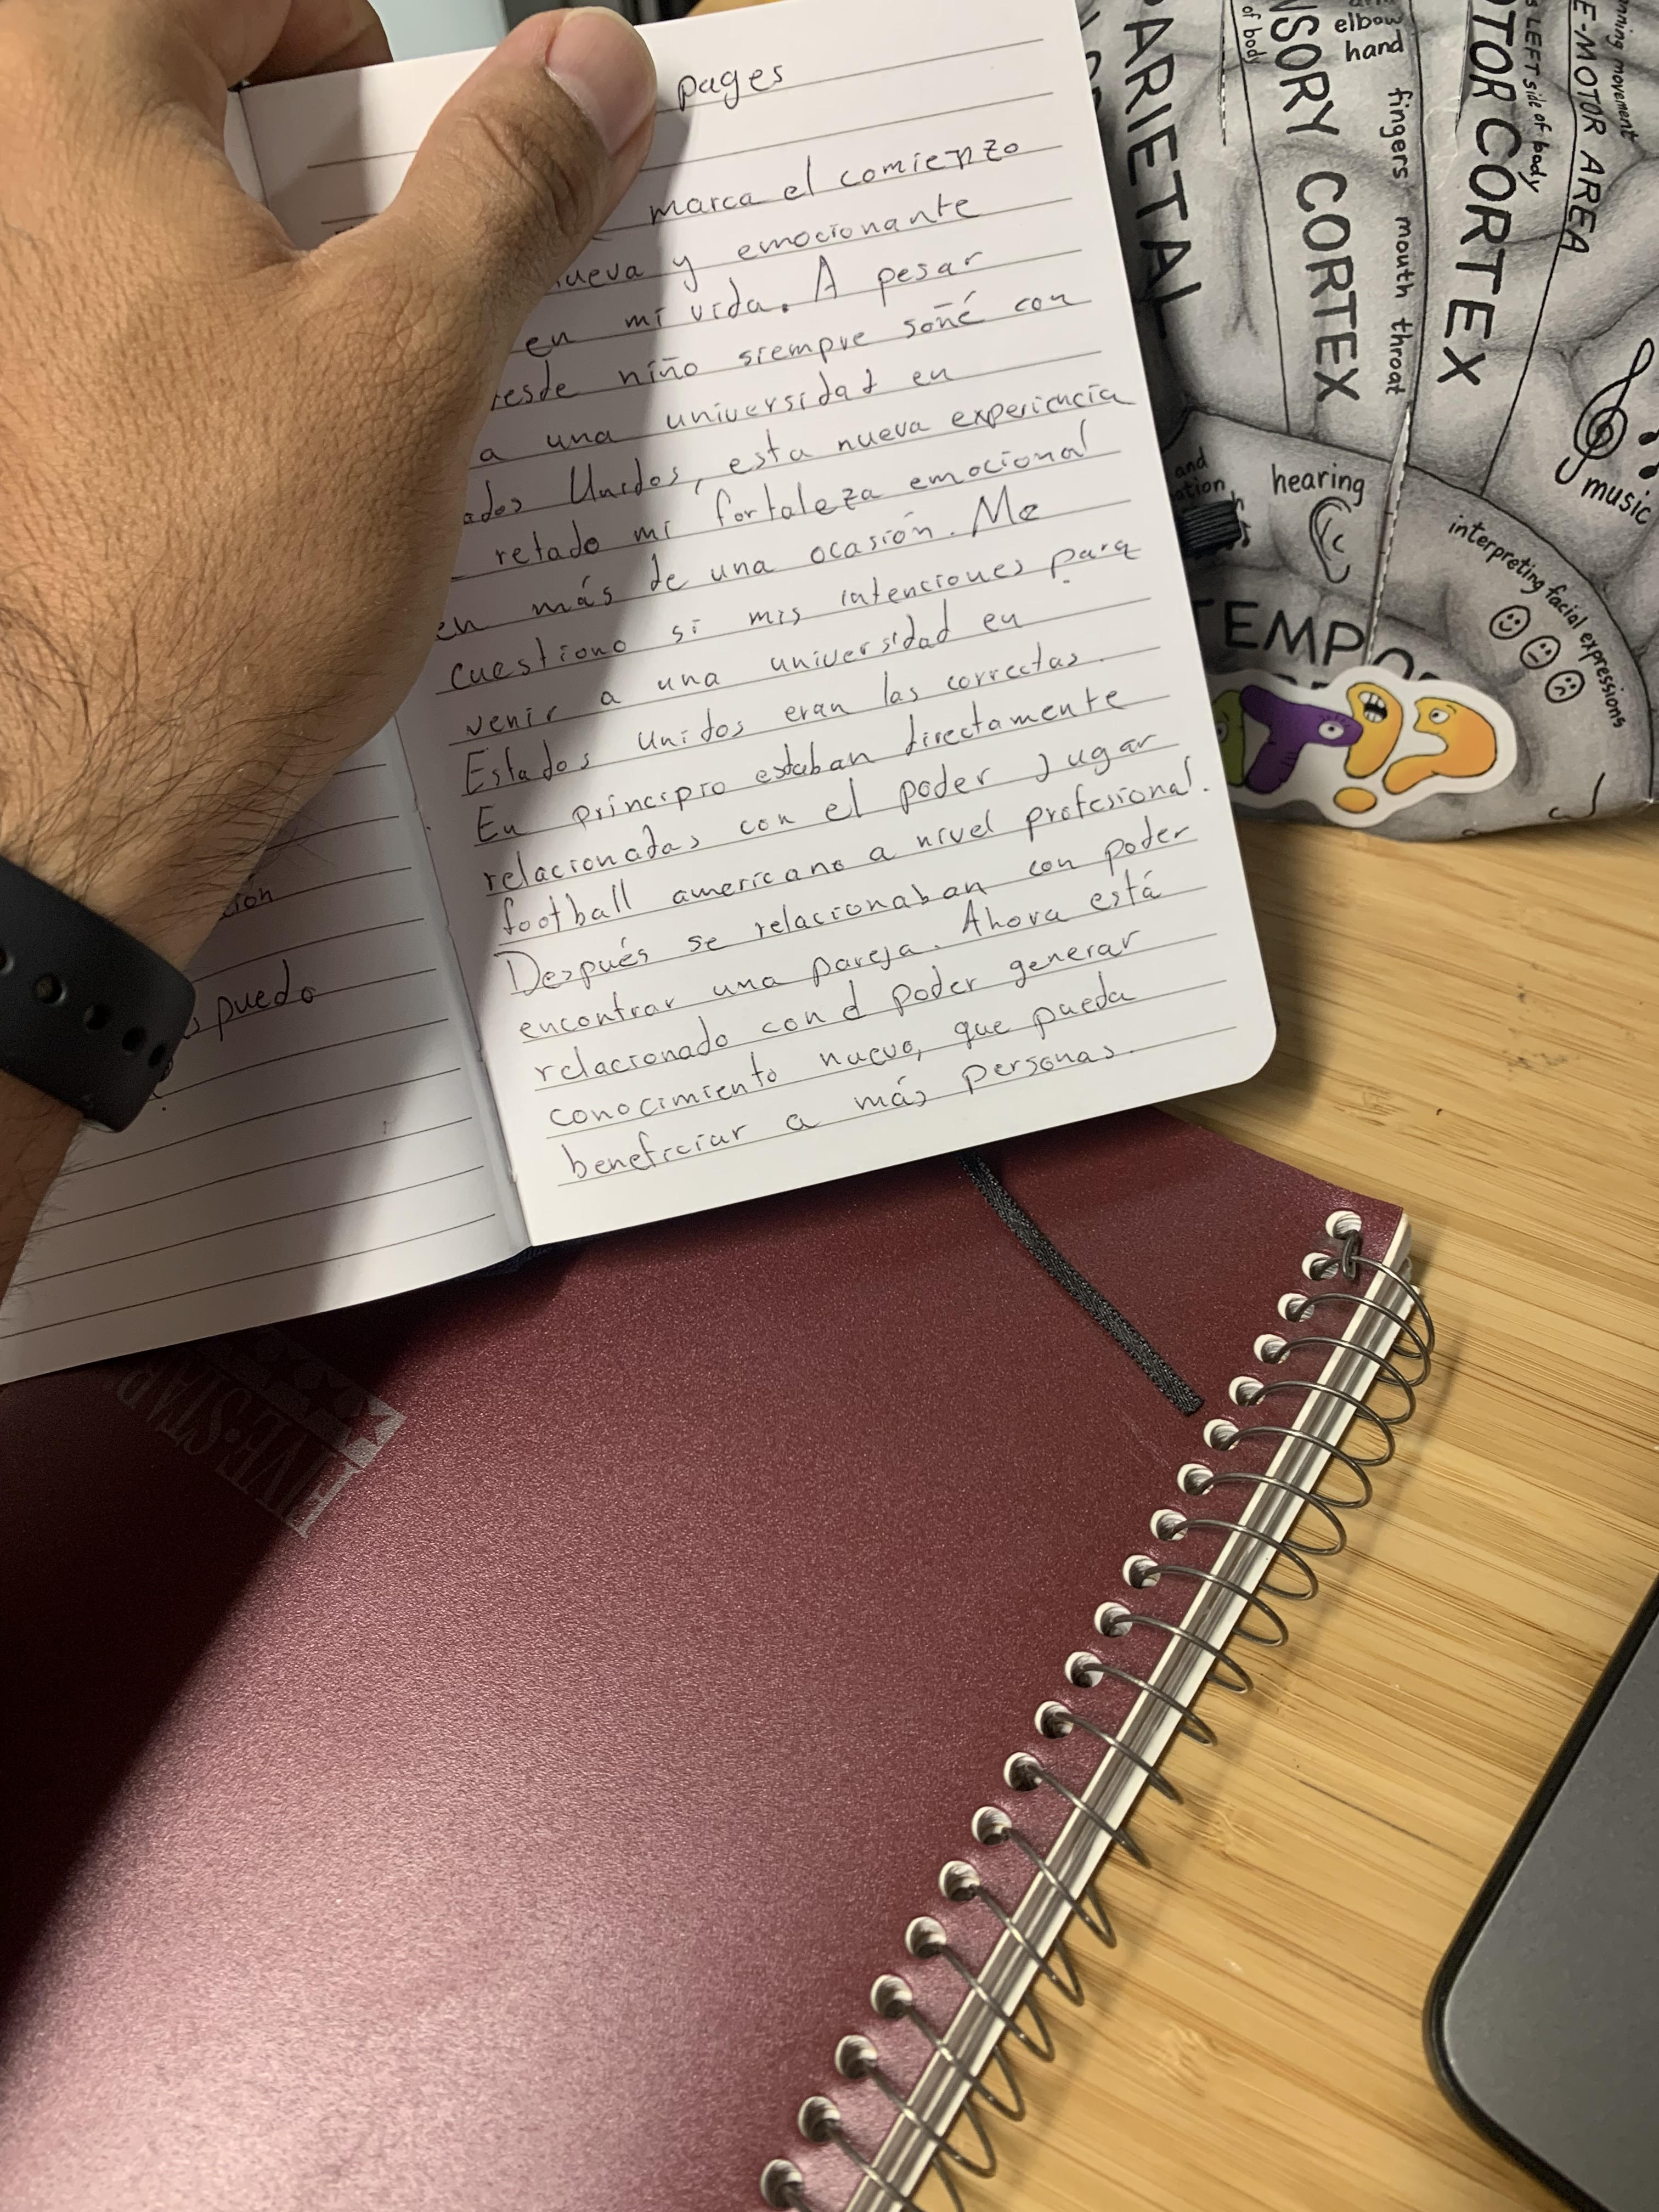 pages
marca el comienzo
nueva y emocionante
en mi vida. A pesar
desde niño siempre soñé con
a una universidad en
ados Unidos, esta nueva experiencia
retado mi fortaleza emocional
en más de una ocasión. Me
cuestiono si mis intenciones para
venir a una universidad en
Estados Unidos eran las correctas.
En principio estaban directamente
relacionadas con el poder jugar
football americano a nivel profesional.
Después se relacionaban con poder
encontrar una pareja. Ahora está
relacionado con el poder generar
conocimiento nuevo, que pueda
beneficiar a más personas.
ción
puedo
FIVE STAR
PARIETAL
of body
NSORY CORTEX
elbow
hand
fingers
mouth
throat
OTOR CORTEX
LEFT side of body
E-MOTOR AREA
nning movement
music
and
ation
hearing
interpreting facial expressions
TEMPO